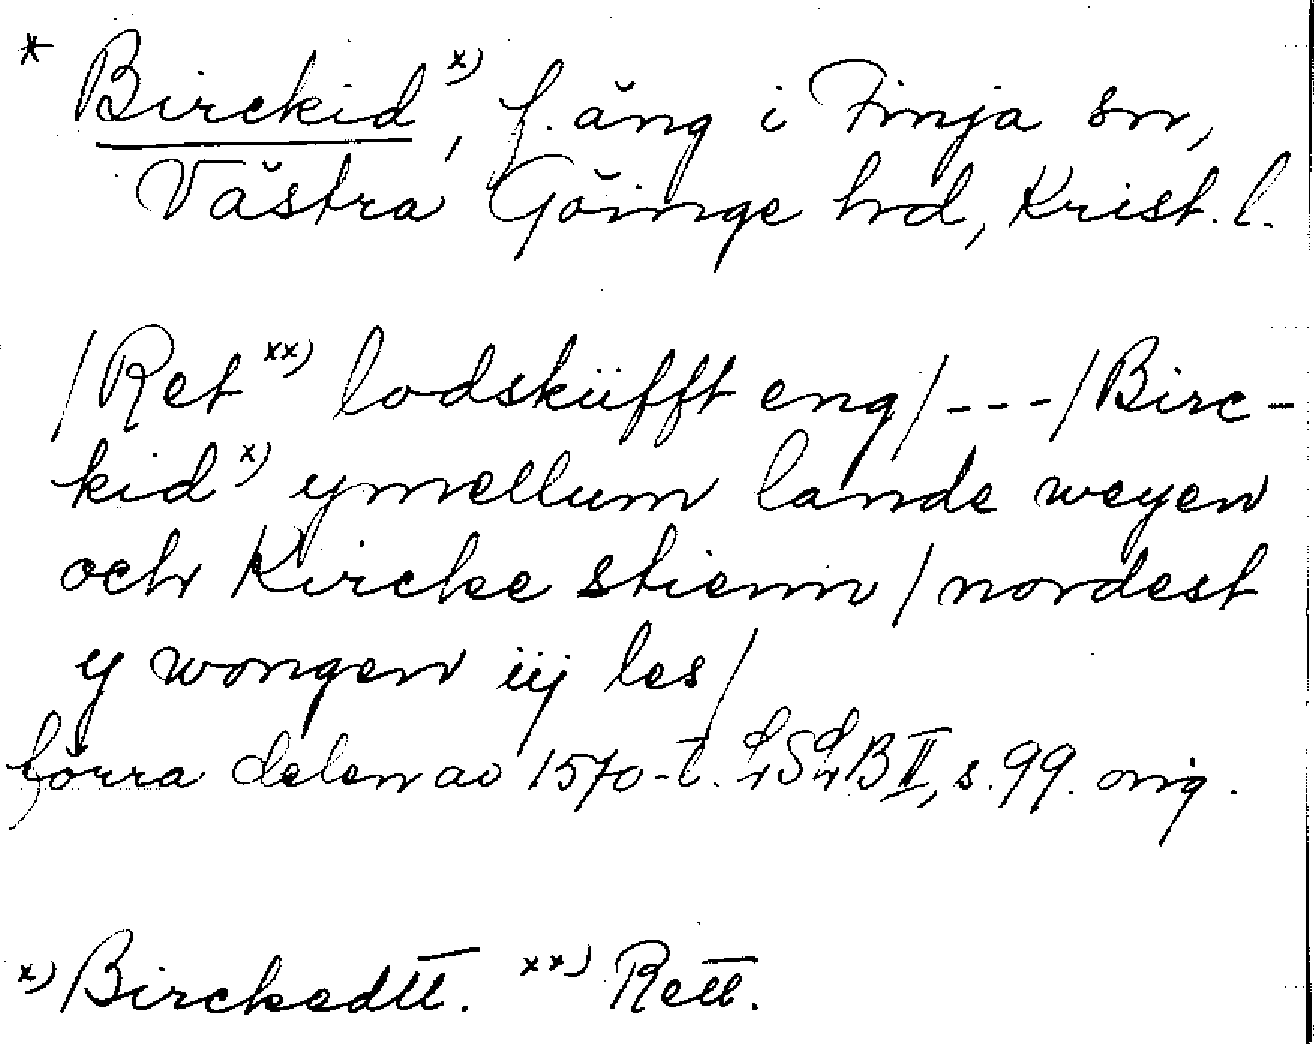 * Birckid x), f. äng i Finja sn,
Västra Göinge hd, Krist. l.
/Ret xx) lodskiifft eng/---/Birc-
kid x) ymellum lande weyen
och Kircke stienn/nordest
y wongen iij les/
förra delen av 1570-t. LSLB II, s. 99. orig.
x) Birckedtt. xx) Rett.